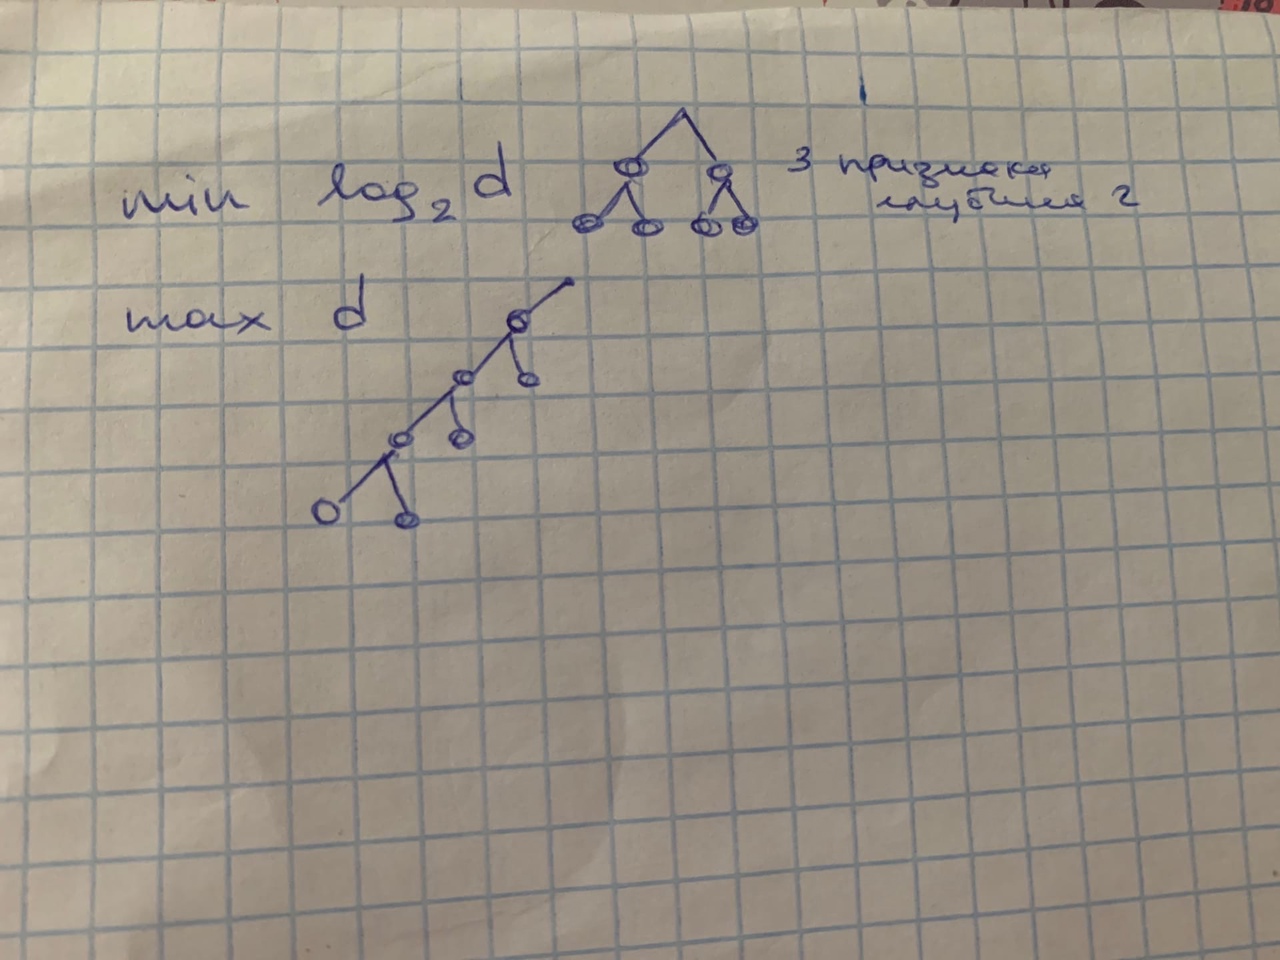 min log₂ d 3 признака
глубина 2
max d